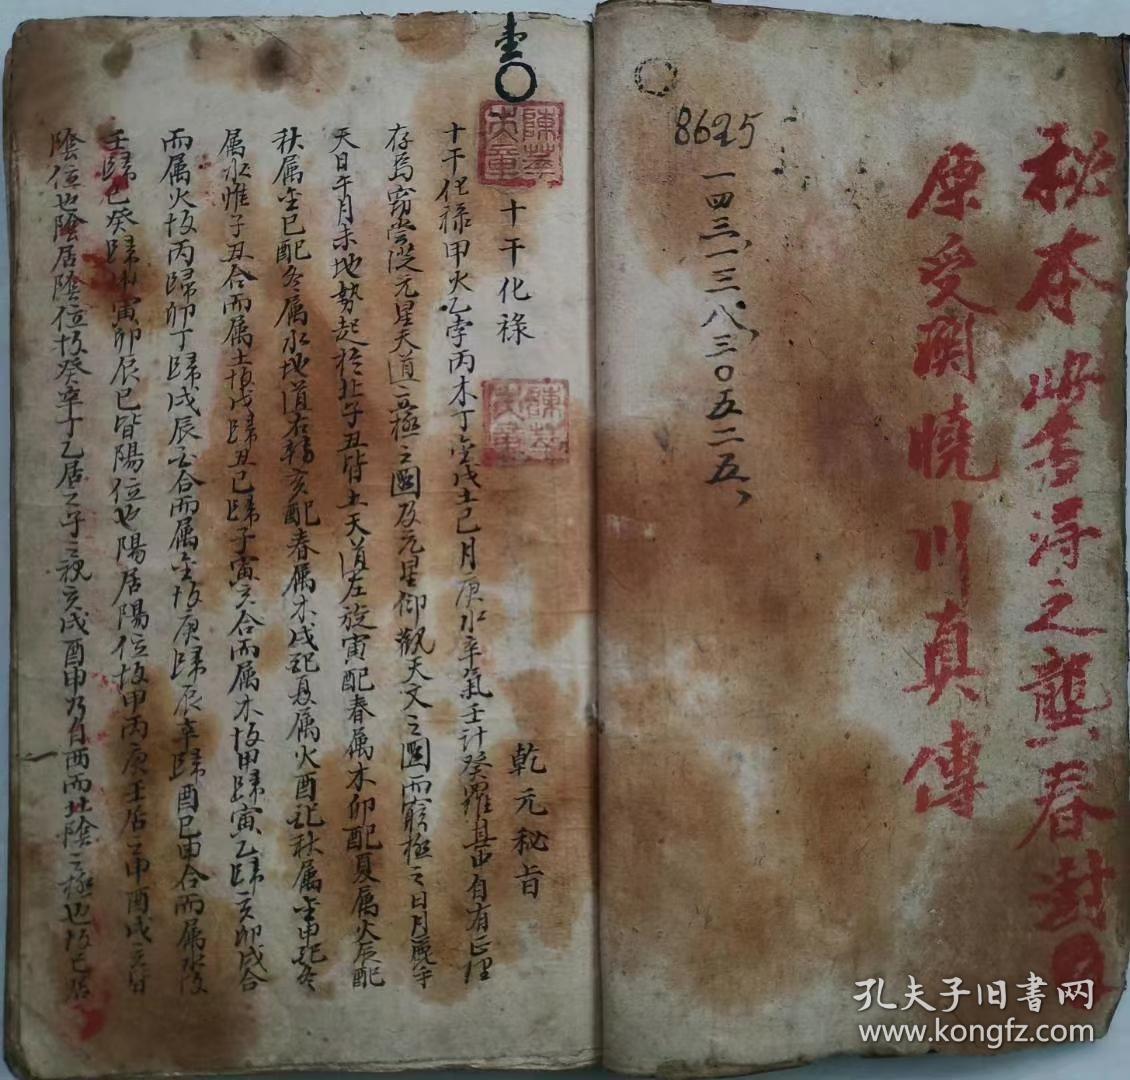 秘本
得之龔春封
原受關曉川真傳
8625
一四三、一三八、三〇五二五、
十干化祿 乾元秘旨
十干化祿甲火乙孛丙木丁金戊土己月庚水辛氣壬計癸羅其中自有正理
存焉 元星天道 極之圖及元星仰觀天文之圖而窮極之日月
天日午月未地勢起於北子丑皆土天道左旋寅配春屬木卯配夏屬火辰配
秋屬金巳配冬屬水地道右轉亥配春屬木戌配夏屬火酉配秋屬金申配冬
屬水惟子丑合而屬土故戊歸丑己歸子寅亥合而屬木故甲歸寅乙歸亥卯戌合
而屬火故丙歸卯丁歸戌辰酉合而屬金故庚歸辰辛歸酉巳申合而屬水故
壬歸巳癸歸申寅卯辰巳皆陽位也陽居陽位故甲丙庚壬居之申酉戌亥皆
陰位也陰居陰位故癸辛丁乙居之 亥戌酉申乃自西而北陰之極也故
孔夫子旧书网
www.kongfz.com